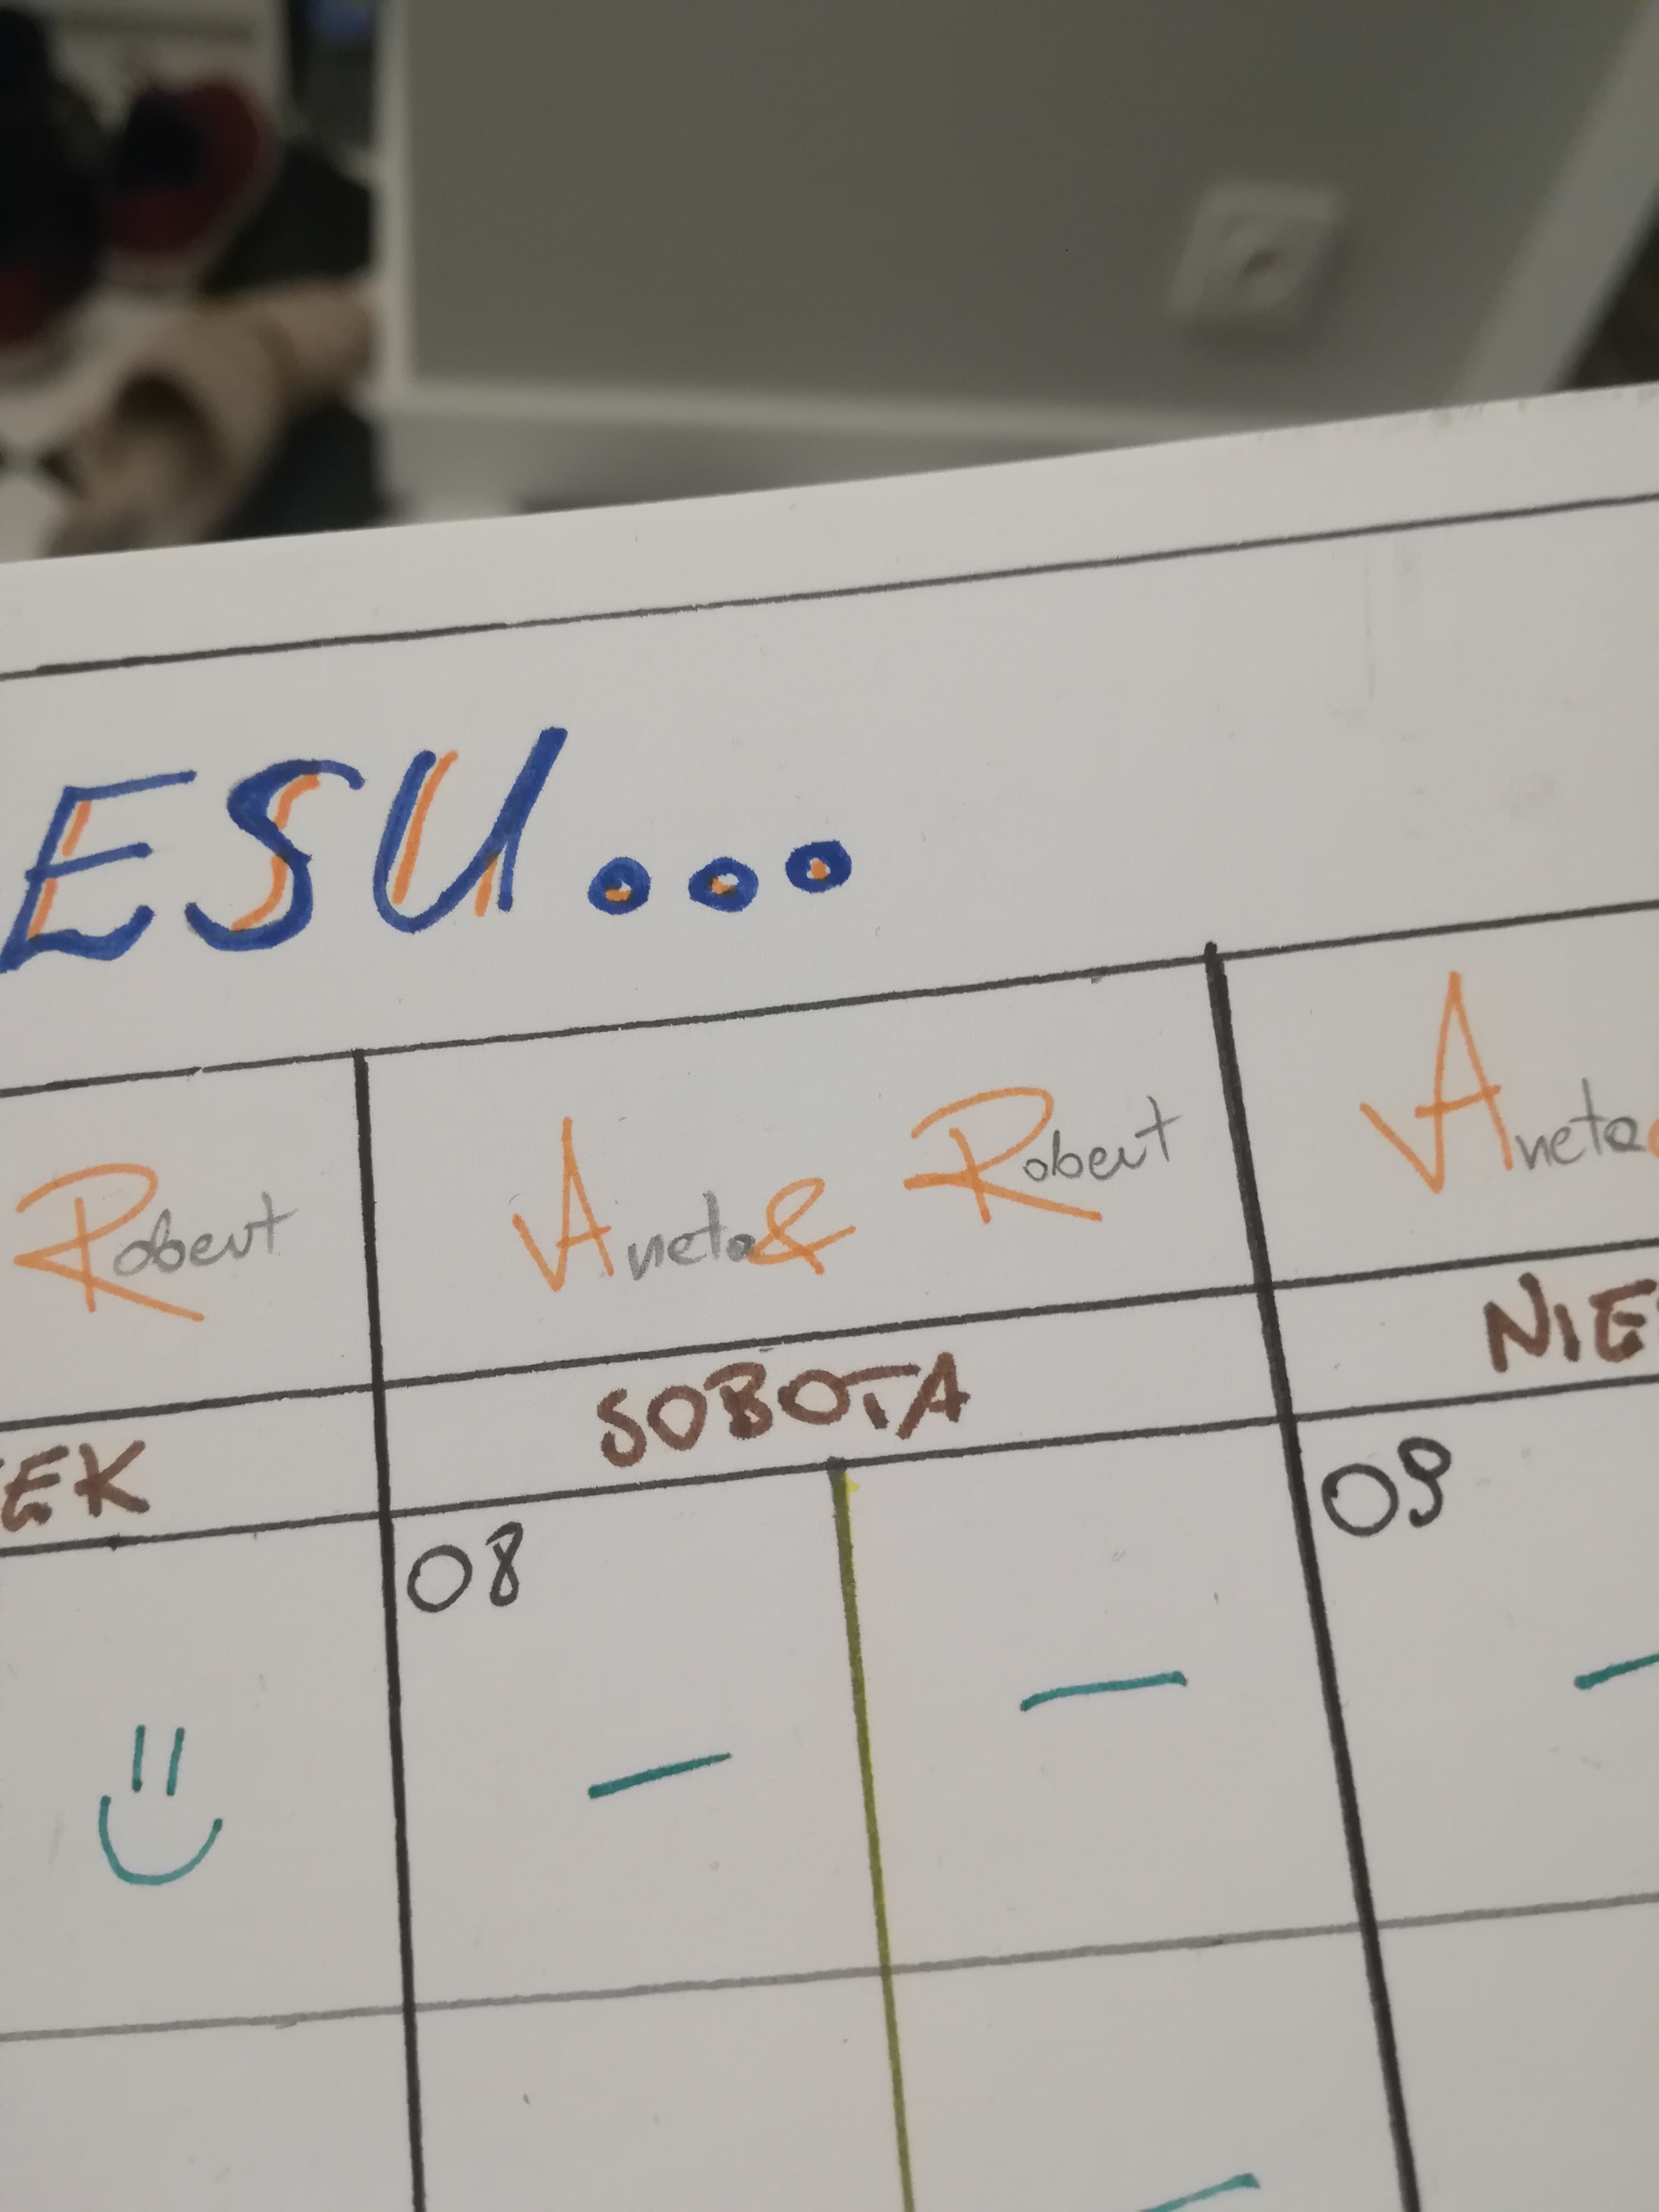 ESU...
Robert Aneta & Robert Aneta
EK SOBOTA NIE
08 09